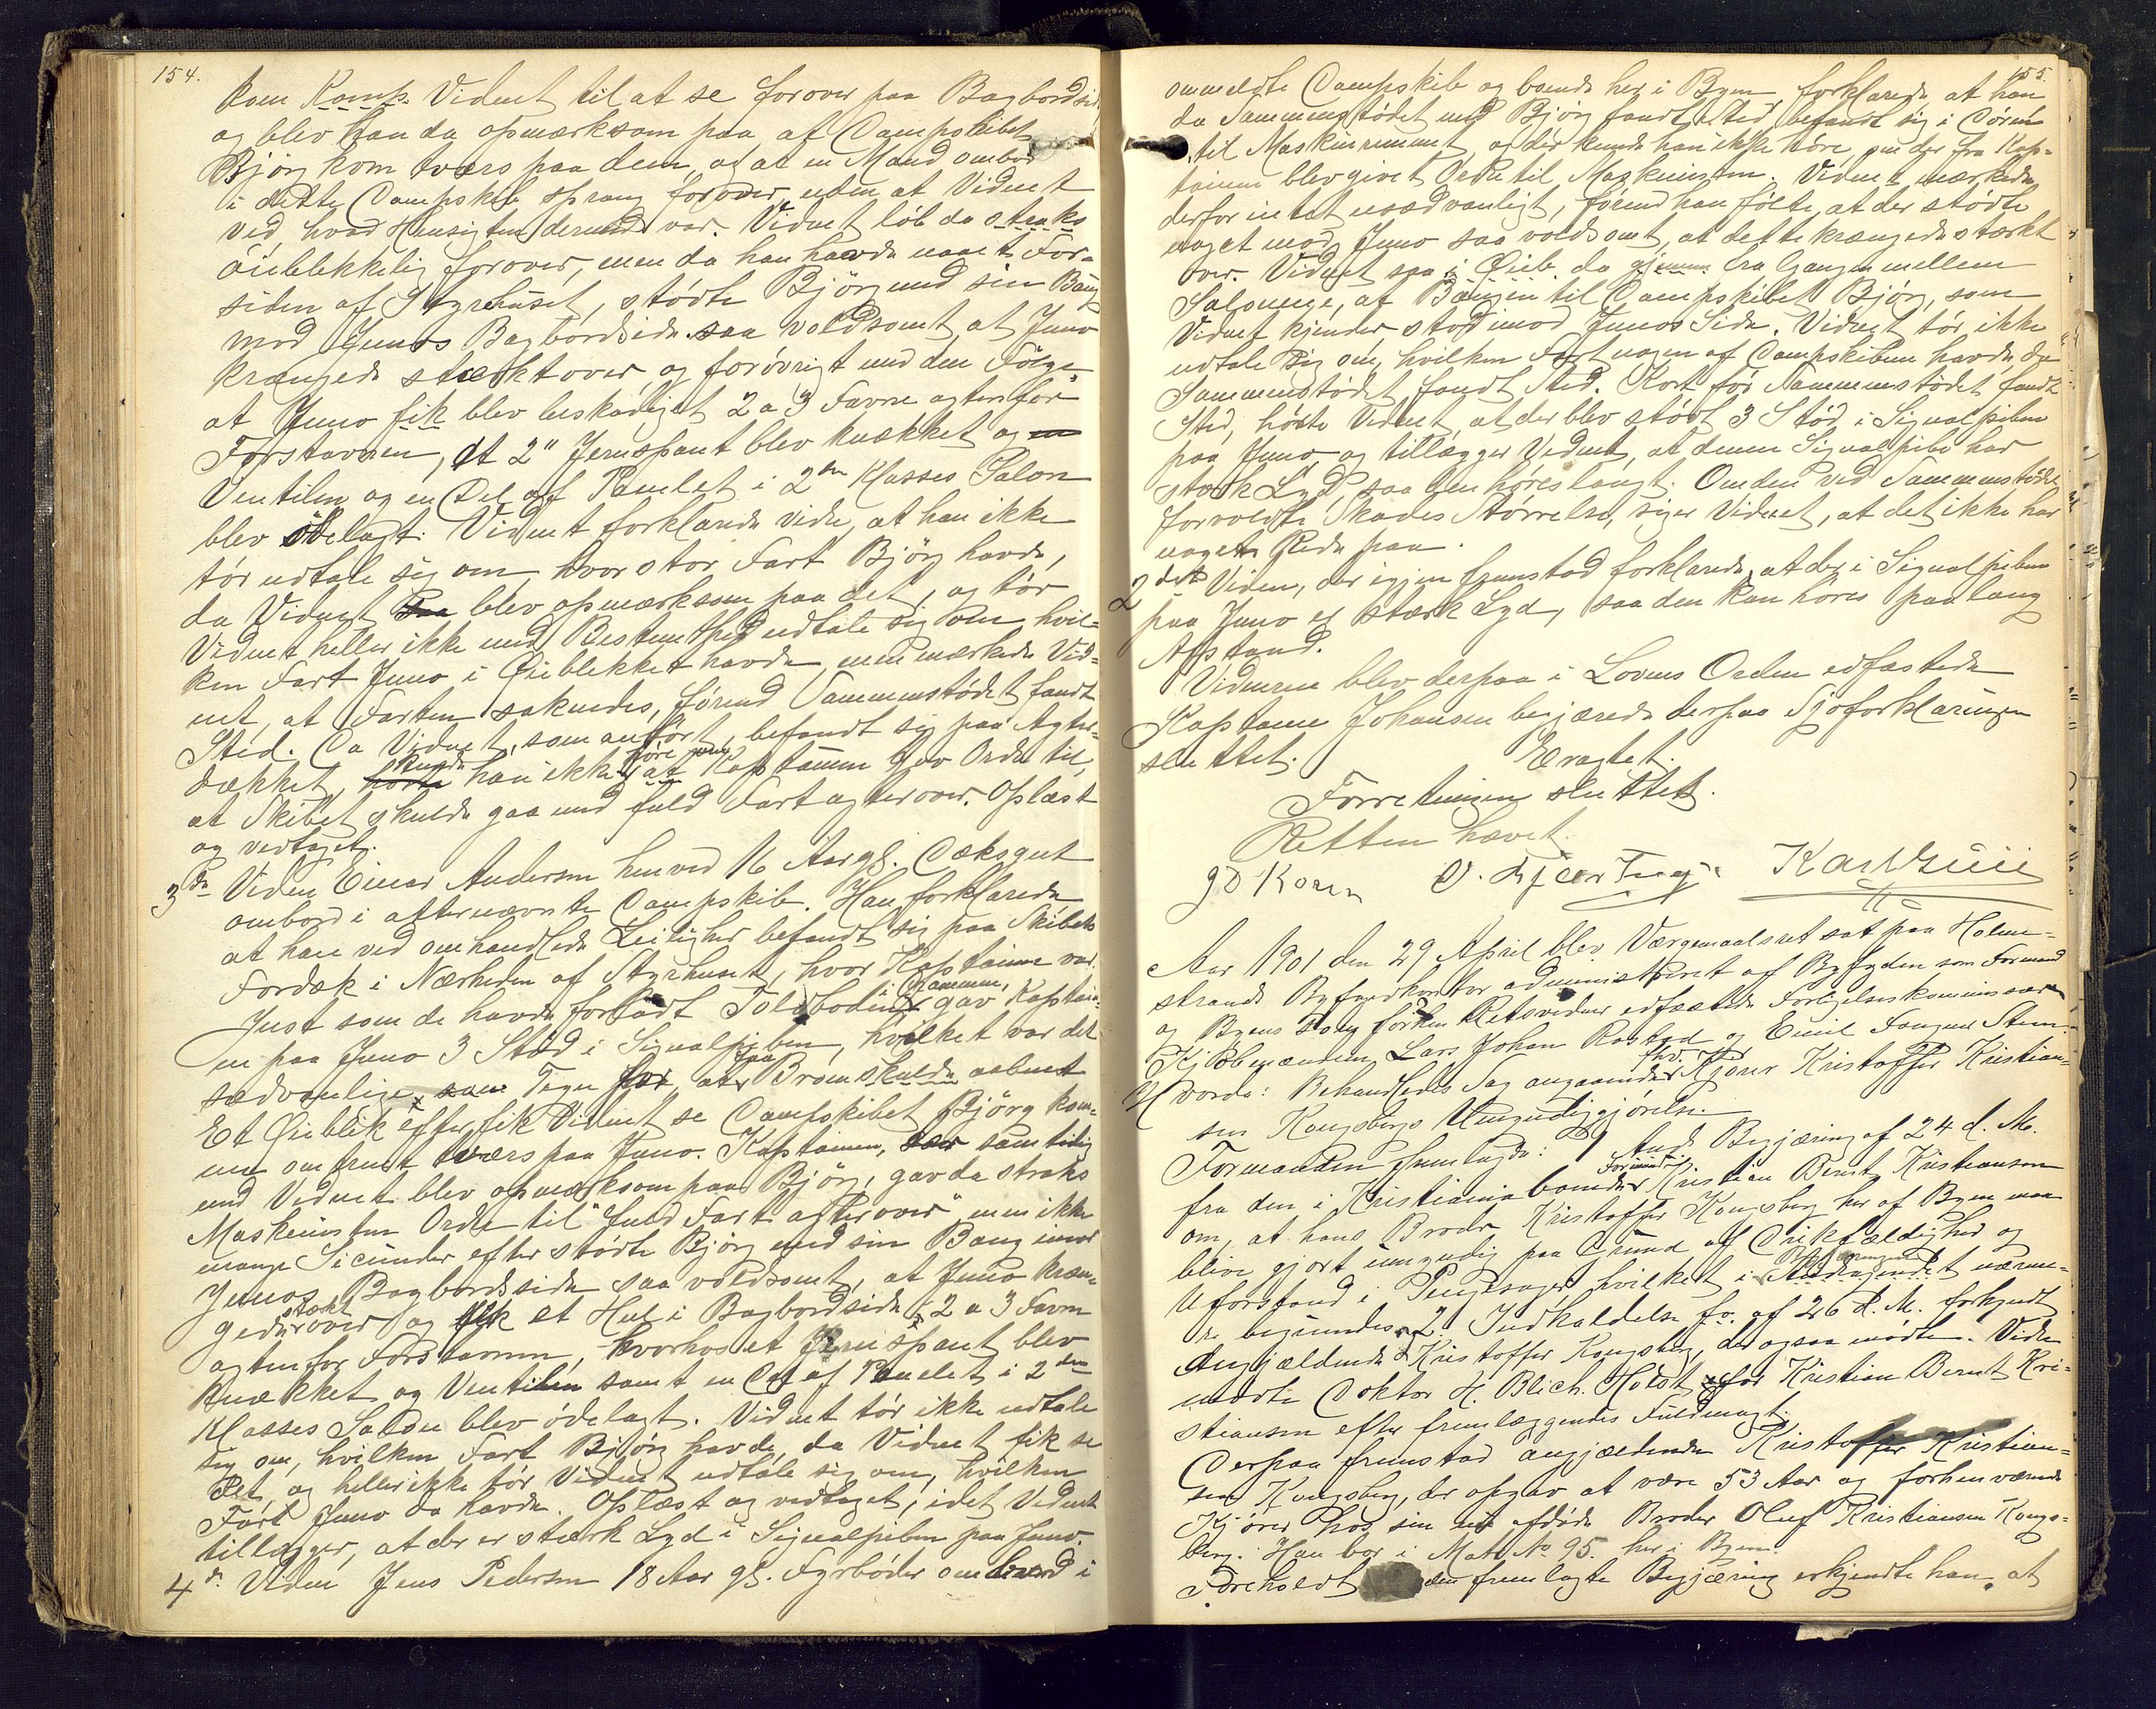 154.
kom Komp. Vidnet til at se forover paa Bagbordsid,
og blev han da opmærksom paa at Dampskibet
Bjørg kom tværs paa dem, og at en Mand ombord
i dette Dampskib sprang forover, uden at Vidnet
ved, hvad Hensigten dermed var. Vidnet løb da straks
øieblikkelig forover, men da han havde naaet For-
siden af Styrehuset, stødte Bjørg med sin Baug
mod Junos Bagbordside saa voldsomt, at Juno
krængede stærkt over, og forøvrigt med den Følge
at Juno fik blev beskadiget 2 a 3 Favne agtenfor
Forstavnen, et 2" Jernspant blev knækket og en
Ventilen og en Del af Panelet i 2den Klasses Salon
blev ødelagt. Vidnet forklarede videre, at han ikke
tør udtale sig om, hvor stor Fart Bjørg havde,
da Vidnet saa blev opmærksom paa det, og tør
Vidnet heller ikke med Bestemthed udtale sig om, hvil-
ken Fart Juno i Øieblikket havde, men mærkede Vid-
net, at Farten saknedes, førend Sammenstødet fandt
Sted. Da Vidnet, som anført, befandt sig paa Agter-
dækket, hørte kunde han ikke høre at Kaptainen gav Ordre til,
at Skibet skulde gaa med fuld Fart agterover. Oplæst
og vedtaget.
3de Vidne Einar Andersen henved 16 Aar gl. Dæksgut
ombord i afternævnte Dampskib. Han forklarede
at han ved omhandlede Leilighed befandt sig paa Skibets
Fordæk i Nærheden af Styrhuset, hvor Kaptainen var.
Just som de havde forladt Toldboden i Drammen, gav Kaptain-
en paa Juno 3 Stød i Signalpiben, hvilket var det
sædvanlige som Tegn for paa, at Broen skulde aabnes
Et Øieblik efter fik Vidnet se Dampskibet Bjørg kom-
me omtrent tværs paa Juno. Kaptainen, som samtidig
med Vidnet blev opmærksom paa Bjørg, gav da straks
Maskinisten Ordre til "fuld Fart agterover" men ikke
mange Secunder efter stødte Bjørg med sin Baug imod
Junos Bagbordsside saa voldsomt, at Juno kræn-
gede stærkt over og fik et Hul i Bagbordside 2 a 3 Favne
agtenfor Forstavnen, hvorhos et Jernspant blev
knækket og Ventilen samt en Del af Panelet i 2den
Klasses Salon blev ødelagt. Vidnet tør ikke udtale
sig om, hvilken Fart Bjørg havde, da Vidnet fik se
det, og heller ikke tør Vidnet udtale sig om, hvilken
Fart Juno da havde. Oplæst og vedtaget, idet Vidnet
tillægger, at der er stærk Lyd i Signalpiben paa Juno.
4de Vidne Jens Pedersen 18 Aar gl. Fyrbøder ombord i
155.
ommeldte Dampskib og boende her i Byen forklarede at han
da Sammenstødet med Bjørg fandt Sted, befandt sig i Døren
til Maskinrummet, og der kunde han ikke høre, om der fra Kap-
tainen blev givet Ordre til Maskinisten. Vidnet mærkede
derfor intet usædvanligt, førend han følte, at der stødte
noget mod Juno saa voldsomt, at dette krængede stærkt
over. Vidnet saa i Øieb. da gjennem fra Gangen mellem
Salonerne, at Baugen til Dampskibet Bjørg, som
Vidnet kjender, stod imod Junos Side. Vidnet tør ikke
udtale sig om, hvilken Fart nogen af Dampskibene havde, da
Sammenstødet fandt Sted. Kort før Sammenstødet fandt
Sted, hørte Vidnet, at der blev stødt 3 Stød i Signalpiben
paa Juno, og tillægger Vidnet, at denne Signalpibe har
stærk Lyd, saa den høres langt. Om den ved Sammenstødet
forvoldte Skades Størrelse, siger Vidnet, at det ikke har
noget Rede paa.
2det Vidne, der igjen fremstod forklarede, at der i Signalpiben
paa Juno er stærk Lyd, saa den kan høres paa lang
Afstand.
Vidnerne blev derpaa i Lovens Orden edfæstede
Kaptainen Johansen begjærede derpaa Sjøforklaringen
sluttet. Eragtet.
Forretningen sluttet.
Retten hævet.
Aar 1901 den 29 April blev Værgemaalsret sat paa Holme-
strands Byfogedkontor administreret af Byfogden som Formand
og Byens Retsvidner edfæstede Forligelseskommissærer
Kjøbmændene Lars Johan Rastad og Emil Fougner Stem.
Hvorda: Behandledes Sag angaaende fhv. Kjører Kristoffer Kristian-
sen Kongsbergs Umyndiggjørelse.
Formanden fremlagde: 1 Begjæring af 24 d. M.
fra den i Kristiania boende Kristian Bernt Kristiansen
om, at hans Broder Kristoffer Kongsberg her af Byen maa
blive gjort umyndig paa Grund af Drikfældighed og
Uforstand i Pengesager, hvilket i Begjæringen nærme-
re begrundes. 2. Indkaldelse fo. af 26 d. M. forkyndt
Angjældende Kristoffer Kongsberg, der ogsaa mødte. Videre
mødte Doktor H. Blich. Holst for Kristian Bernt Kri-
stiansen efter fremlæggendes Fuldmagt.
Derpaa fremstod angjældende Kristoffer Kristian-
sen Kongsberg, der opgav at være 53 Aar og forhenværende
Kjører hos sin nu afdøde Broder Oluf Kristiansen Kongs-
berg. Han bor i Matr. No 95. her i Byen.
Foreholdt den fremlagte Begjæring erkjendte han, at